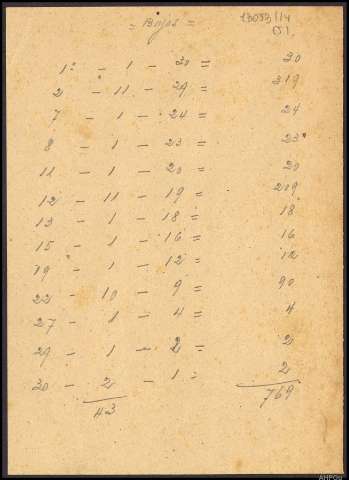 = Bajas =
13093/14
(5).
1º - 1 - 30 = 30
2 - 11 - 29 = 319
7 - 1 - 24 = 24
8 - 1 - 23 = 23
11 - 1 - 20 = 20
12 - 11 - 19 = 209
13 - 1 - 18 = 18
15 - 1 - 16 = 16
19 - 1 - 12 = 12
22 - 10 - 9 = 90
27 - 1 - 4 = 4
29 - 1 - 2 = 2
30 - 2 - 1 = 2
43 769
AHPOu